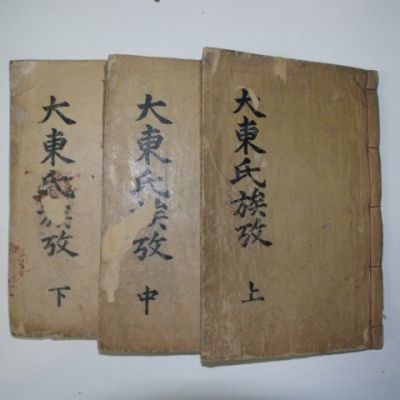 大東氏族攷 上
大東氏族攷 中
大東氏族攷 下